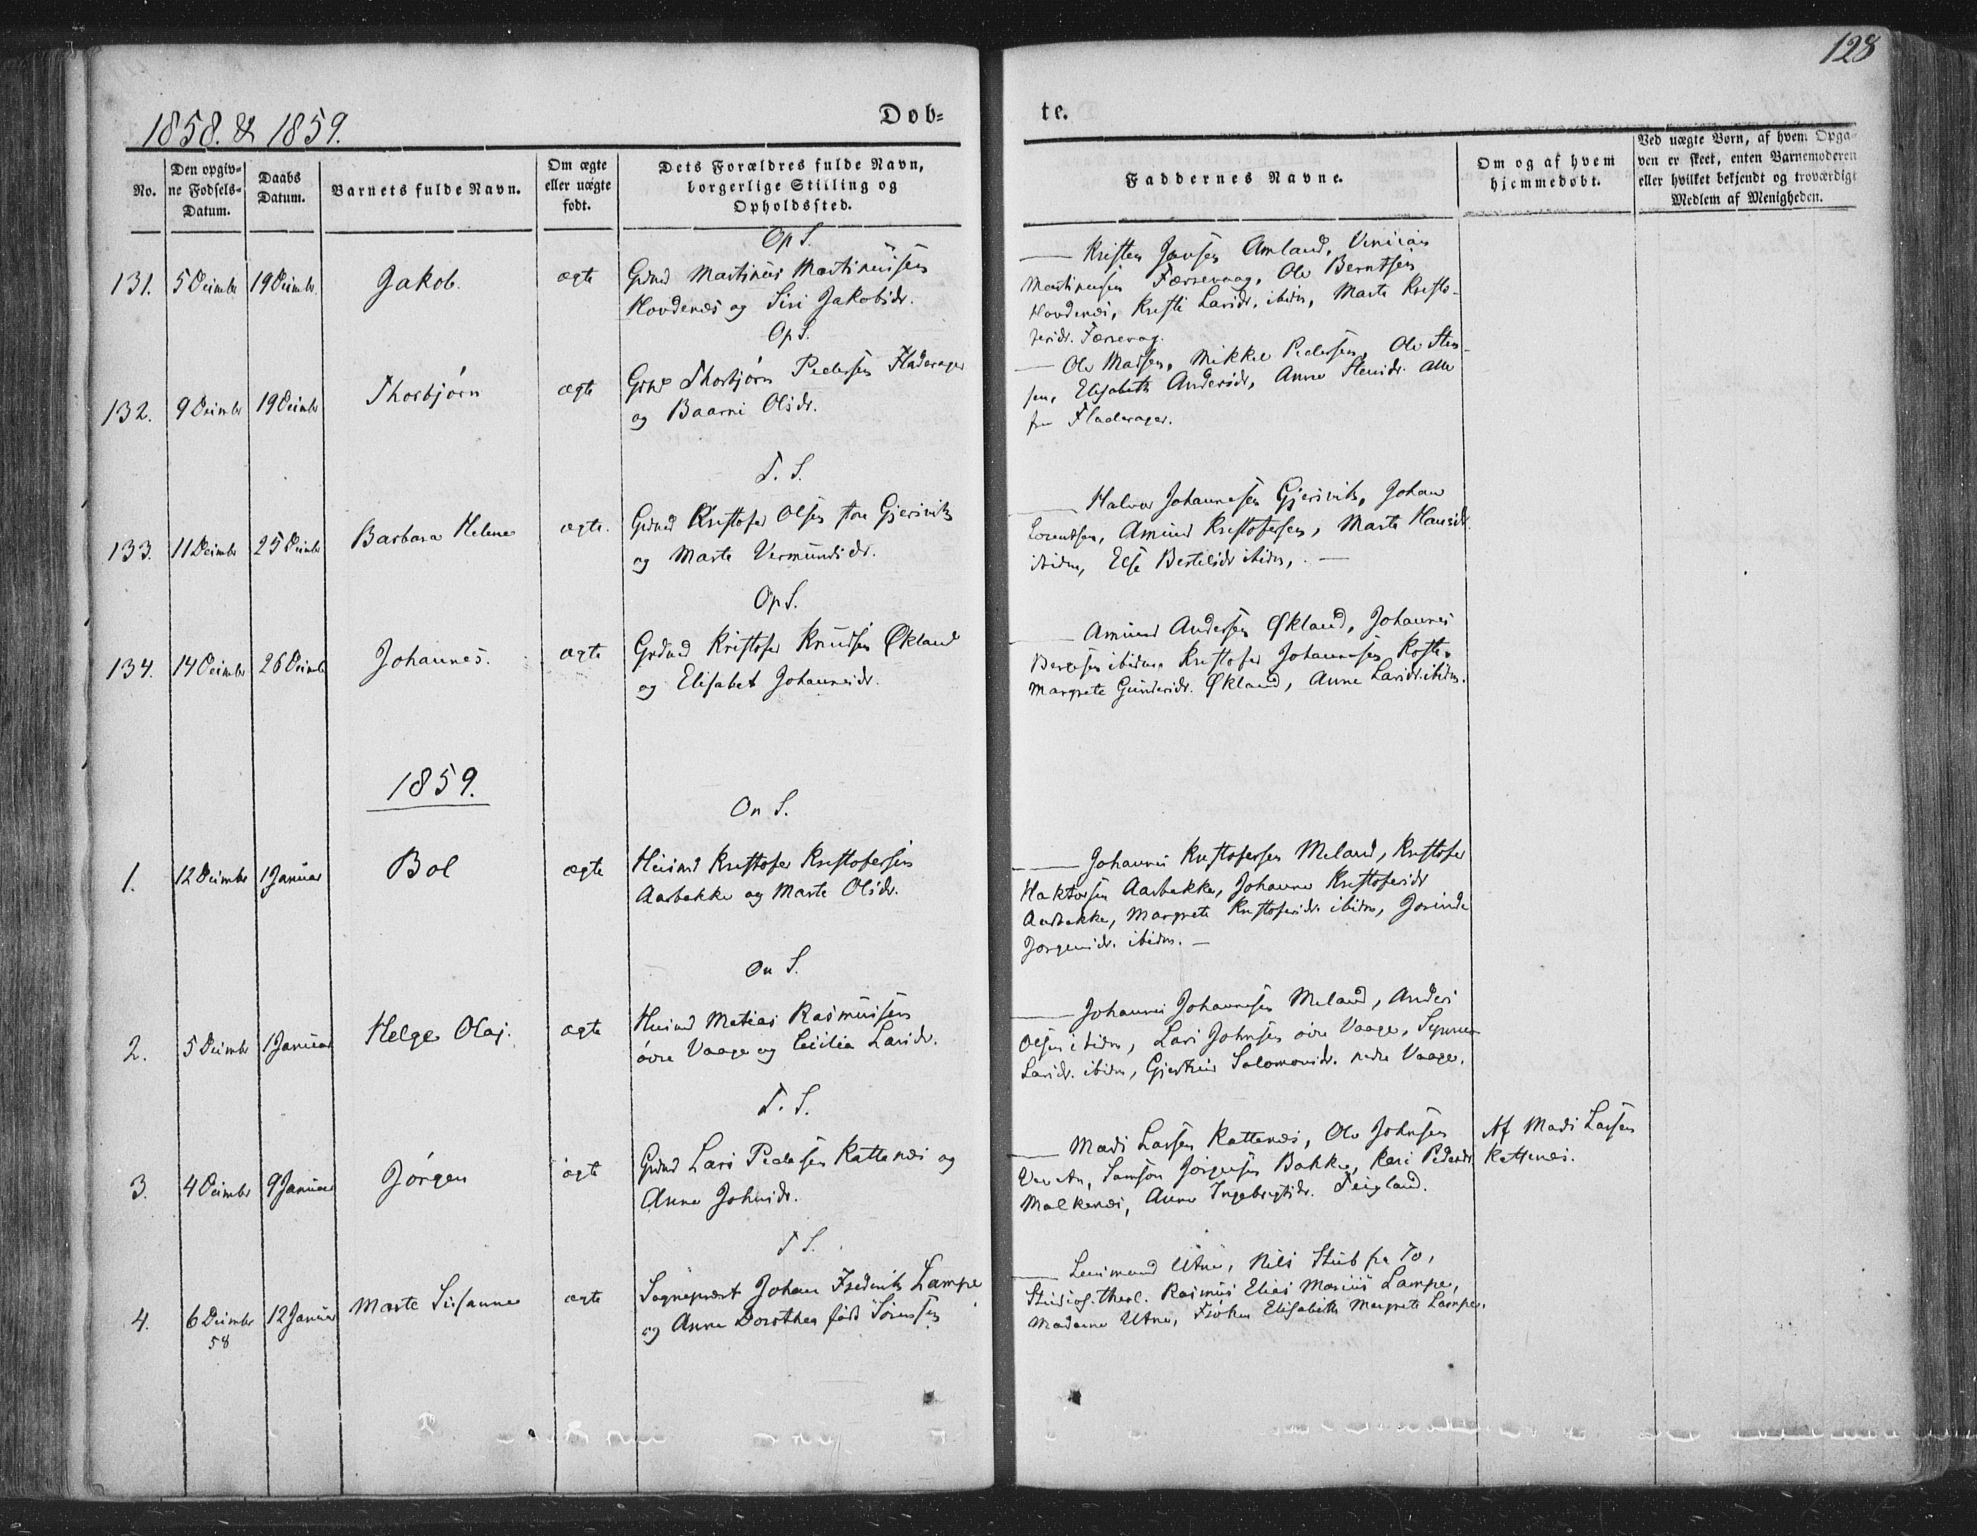 128
1858. & 1859.
Dob-
te.
No.
Den opgiv-
ne Fødsels-
Datum.
Daabs
Datum.
Barnets fulde Navn.
Om ægte
eller uægte
født.
Dets Forældres fulde Navn,
borgerlige Stilling og
Opholdssted.
Faddernes Navne.
Om og af hvem
hjemmedøbt.
Ved uægte Børn, af hvem Opga-
ven er skeet, enten Barnemoderen
eller hvilket bekjendt og troværdigt
Medlem af Menigheden.
Op S.
131. 5 Decmbr 19 Decmbr. Jakob. ægte
Grdmd Martinus Martinussen
Hovdenæs og Siri Jakobsdr.
Kristen Jansen Amland,
Martinusen Færsevaag, Ole Berntsen
Hovdenæs, Kristi Larsdr. ibidm, Marte Kristo-
fersdr. Færsevag.
Op S.
132. 9 Decmbr 19 Decmbr Thorbjørn ægte
Thorbjørn Pedersen Fladerager
og Baarni Olsdr.
Ole Matsen, Mikkel Pedersen, Ole Sten-
sen, Elisabeth Andersdr, Anne Stensdr. alle
fra Fladerager.
T. S.
133. 11 Decmbr 25 Decmbr Barbara Helene ægte.
Grdmd Kristofer Olsen store Gjersvik
og Marte Vermundsdr.
Halvor Johannesen Gjersvik, Johan
Lorentsen, Amund Kristofersen, Marte Hansdr.
ibidm, Else Bertelsdr ibidm, . —
Op S.
134. 14 Decmbr 26 Decmbr Johannes. ægte
Grdmd Kristofer Knudsen Økland
og Elisabet Johannesdr.
Amund Andersen Økland, Johannes
ibidm, Kristofer Johannesen
Margrete Gundersdr. Økland, Anne Larsdr. ibidm.
1859.
On S.
1. 12 Decmbr 1 Januar Bol ægte
Huusmd Kristofer Kristofersen
Aarbakke og Marte Olsdr.
Johannes Kristofersen Meland, Kristofer
Haktorsen Aarbakke, Johanne Kristofersdr
Aarbakke, Margrete Kristofersdr. ibidm, Gurinde
Jørgensdr. ibidm. —
On S.
2. 5 Decmbr 1 Januar Helge Olaj. ægte
Huusmd Matias Rasmussen
øvre Vaage og Cecilia Larsdr.
Johannes Johannesen Meland, Anders
Olsen ibidm, Lars Johnsen øvre Vaage, Synneva
Larsdr. ibidm, Gjertrud Salomonsdr. nedre Vaage.
T. S.
3. 4 Decmbr 9 Januar Jørgen ægt
Grdmd Lars Pedersen Kattenæs og
Anna Johnsdr.
Mads Larsen Kattenæs, Ole Johnsen
Samson Jørgensen Bakke, Kari Pedersdr
Malkenæs, Anna Ingebrigtsdr. Feigland.
Af Mads Larsen
Kattenæs.
T S.
4. 6 Decmbr 12 Januar Marte Susanne ægte
58
Sognepræst Johan Frederik Lampe
og Anne Dorothea født Sørensen
Lensmand Utne, Nils Stub fra To,
Studios. theol. Rasmus Elias Marius Lampe,
Madame Utne, Frøken Elisabeth Margrete Lampe.